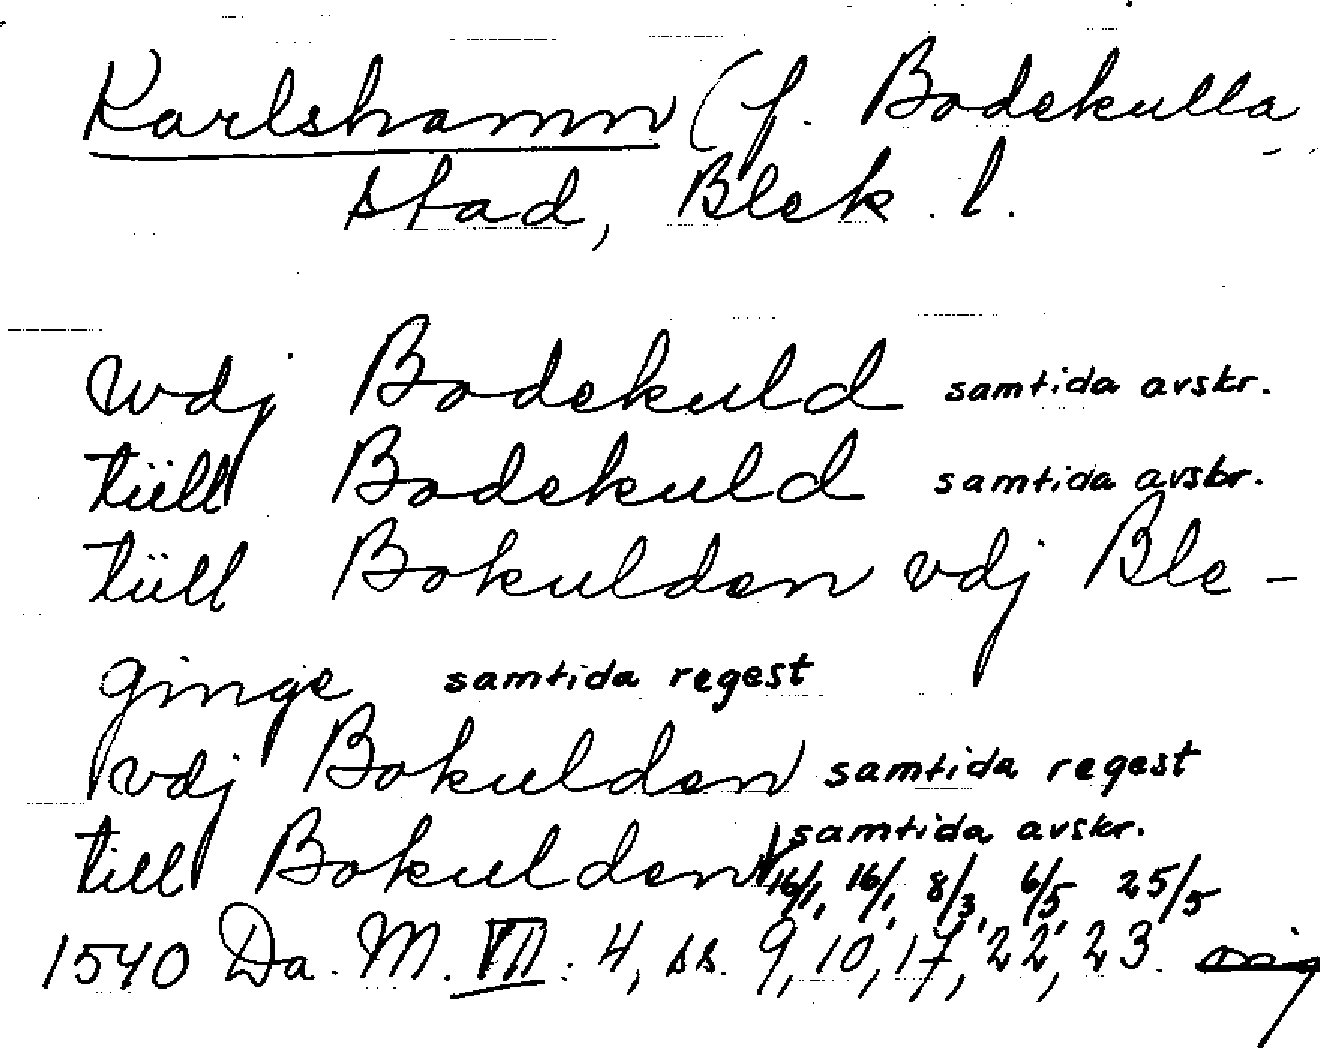 Karlshamn (f. Bodekulla
stad, Blek. l.
wdj Bodekuld samtida avskr.
tüll Bodekuld samtida avskr.
tüll Bokulden vdj Ble-
ginge samtida regest
vdj Bokulden samtida regest
till Bokulden samtida avskr.
16/1, 16/1, 8/3, 6/5, 25/5
1540 Da. M. VII: 4, ss. 9, 10, 17, 22, 23. orig